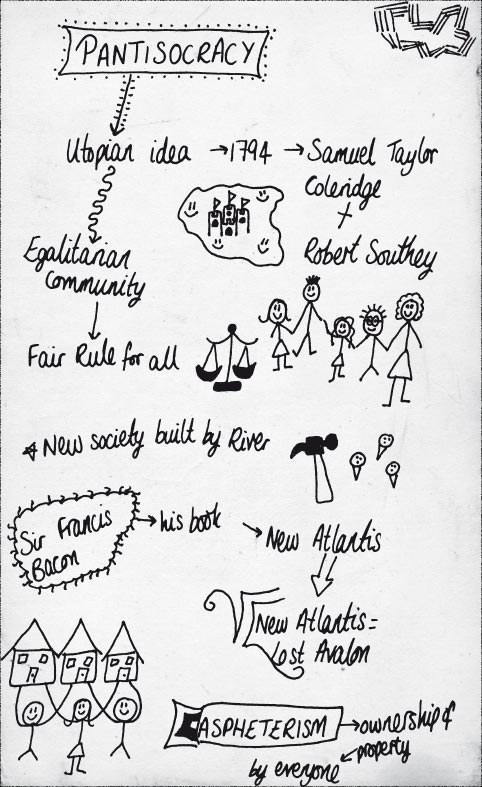 PANTISOCRACY
Utopian idea → 1794 → Samuel Taylor
Coleridge
+
Robert Southey
Egalitarian
Community
Fair Rule for all
New society built by River
Sir Francis
Bacon
→ his book → New Atlantis
New Atlantis =
Lost Avalon
ASPHETERISM → ownership of
property
by everyone